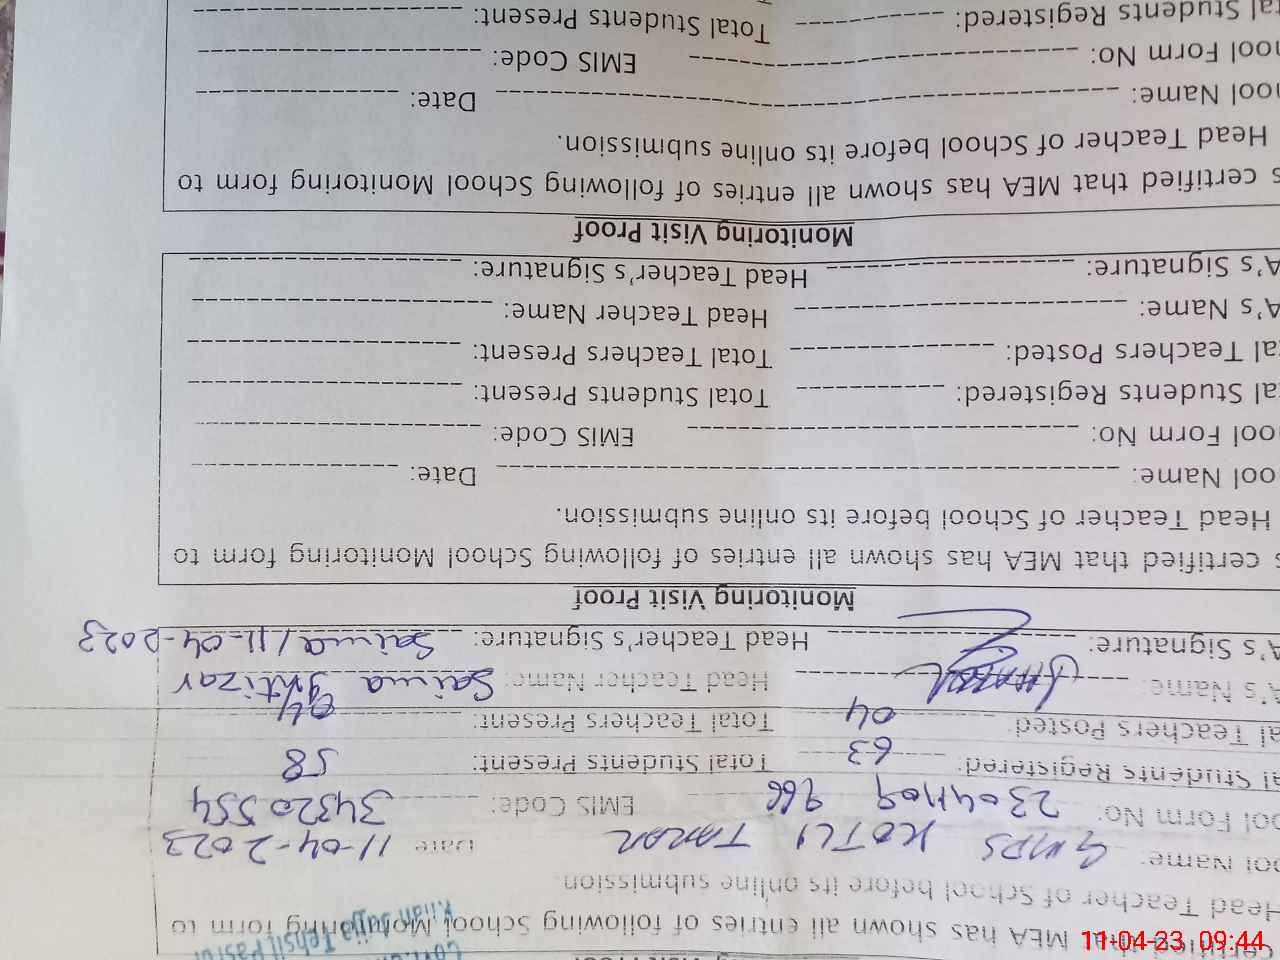 Monitoring Visit Proof
certified that MEA has shown all entries of following School Monitoring form to
Head Teacher of School before its online submission.
Khan Sujja Tehsil Pasrur
ool Name: GMPS KOTLI TARAR Date 11-04-2023
ool Form No: 2304H09 966 EMIS Code: 34320554
al Students Registered: 63 Total Students Present: 58
al Teachers Posted: 04 Total Teachers Present: 04
A's Name: Head Teacher Name: Saima Ightizar
A's Signature: Head Teacher's Signature: Saima / 11-04-2023
Monitoring Visit Proof
s certified that MEA has shown all entries of following School Monitoring form to
Head Teacher of School before its online submission.
ool Name: Date:
ool Form No: EMIS Code:
tal Students Registered: Total Students Present:
tal Teachers Posted: Total Teachers Present:
A's Name: Head Teacher Name:
A's Signature: Head Teacher's Signature:
Monitoring Visit Proof
s certified that MEA has shown all entries of following School Monitoring form to
Head Teacher of School before its online submission.
hool Name: Date:
hool Form No: EMIS Code:
tal Students Registered: Total Students Present:
11-04-23 09:44